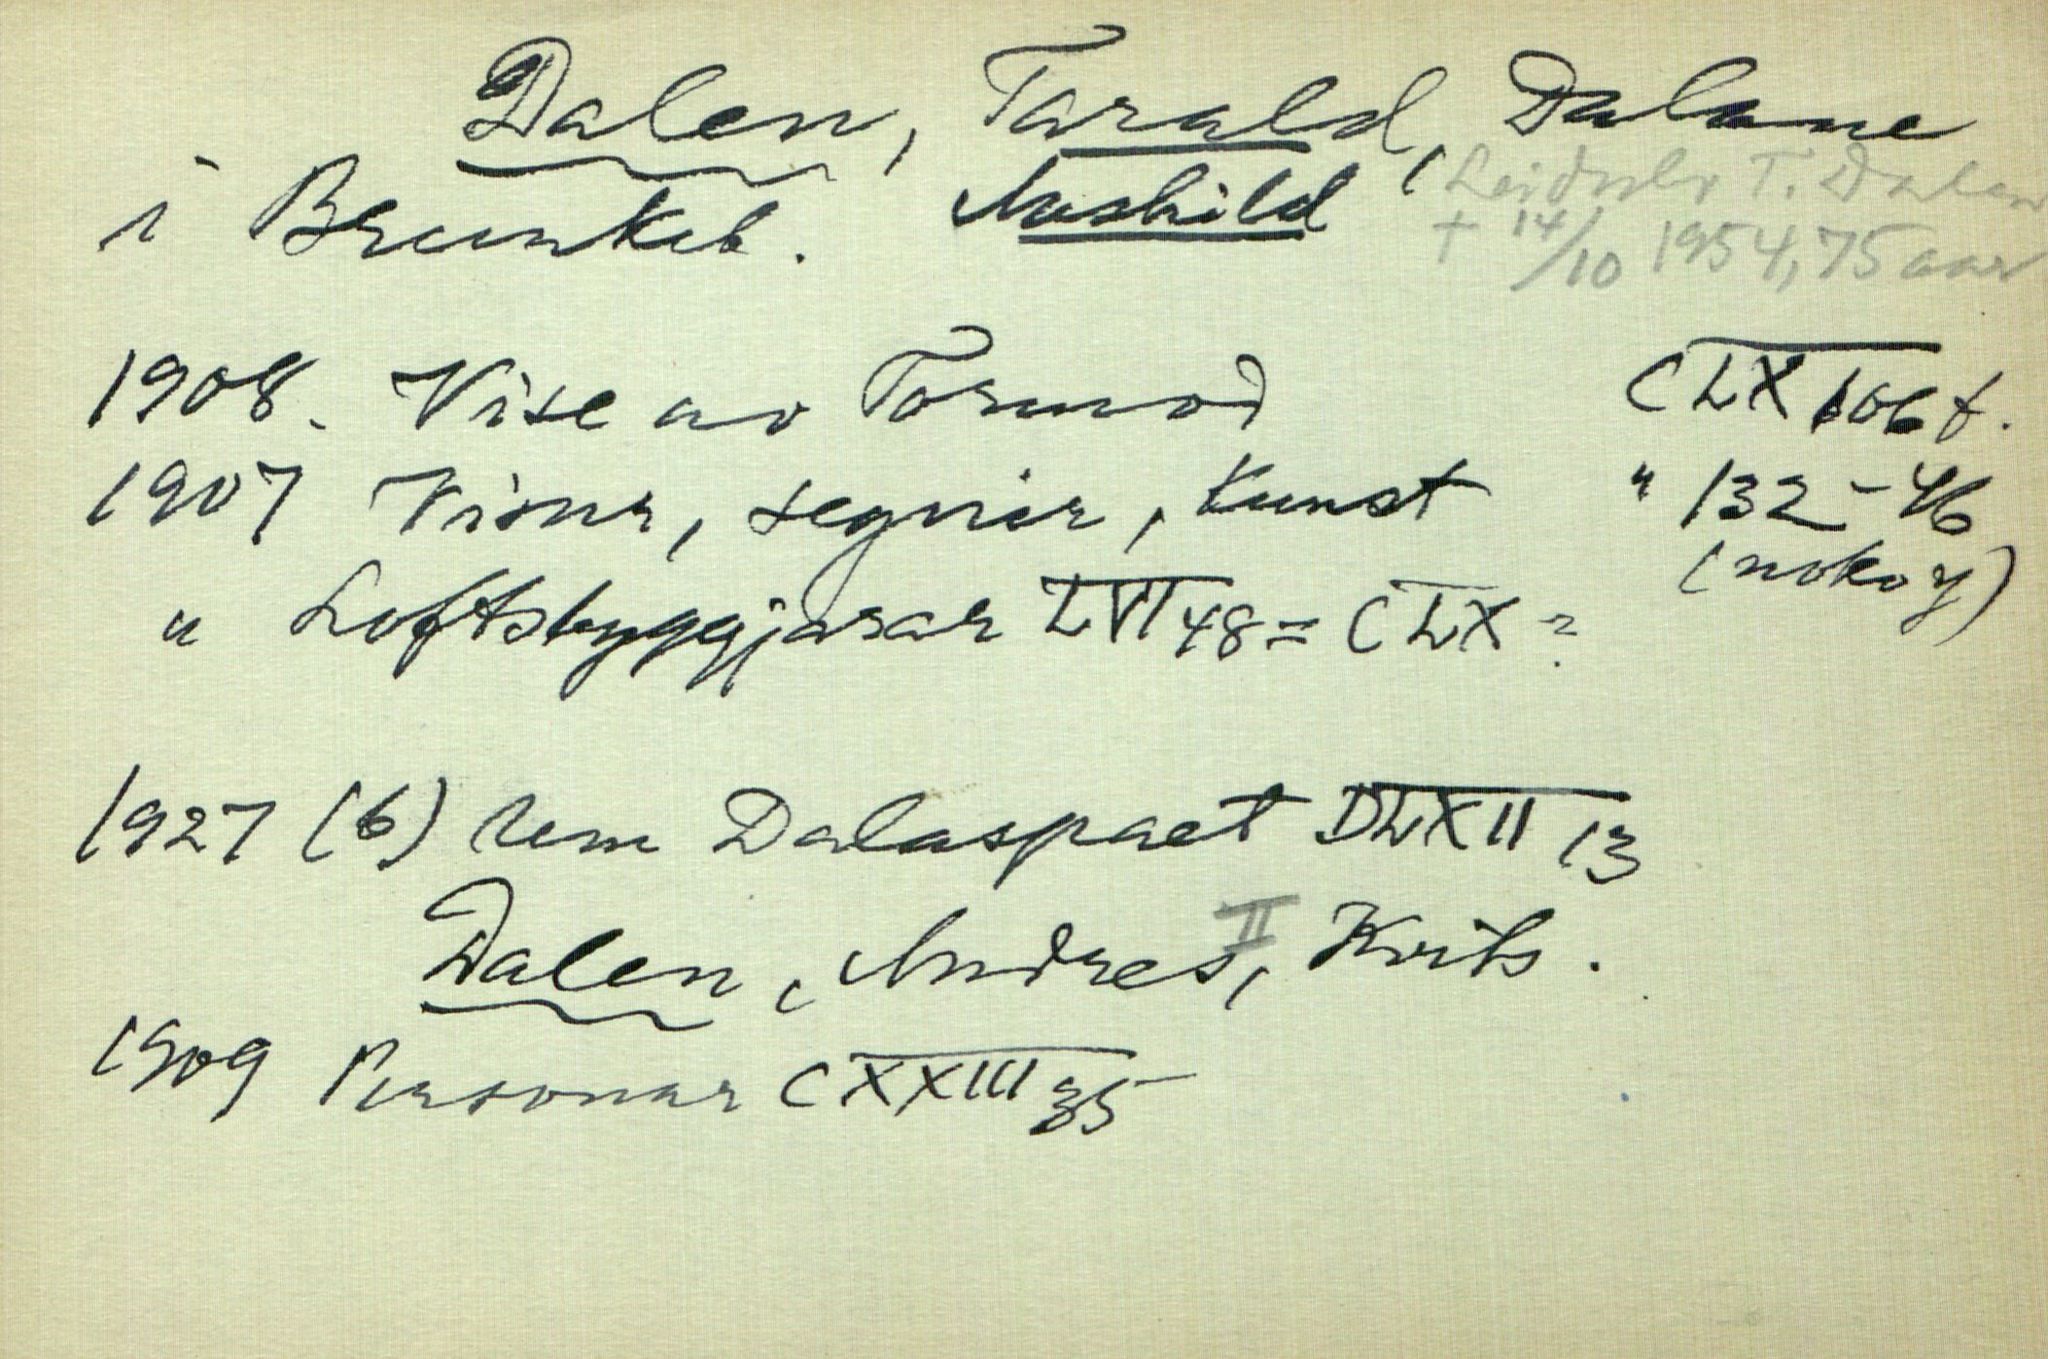 Dalen, Tarald, Dalane
i Brunkeb. Aasbild
Leidulv T. Dalen
+ 14/10 1954, 75 aar
1908. Vise av Tormod CLX 106 f.
1907 Visur, segnir, kunst " 132-46
(noko y)
" Loftsbyggjarar LVI 48 = CLX ?
1927 (6) Um Dalaspaet DLXII 13
Dalen, Andres II, Kvits.
1909 Personar CXXIII 35